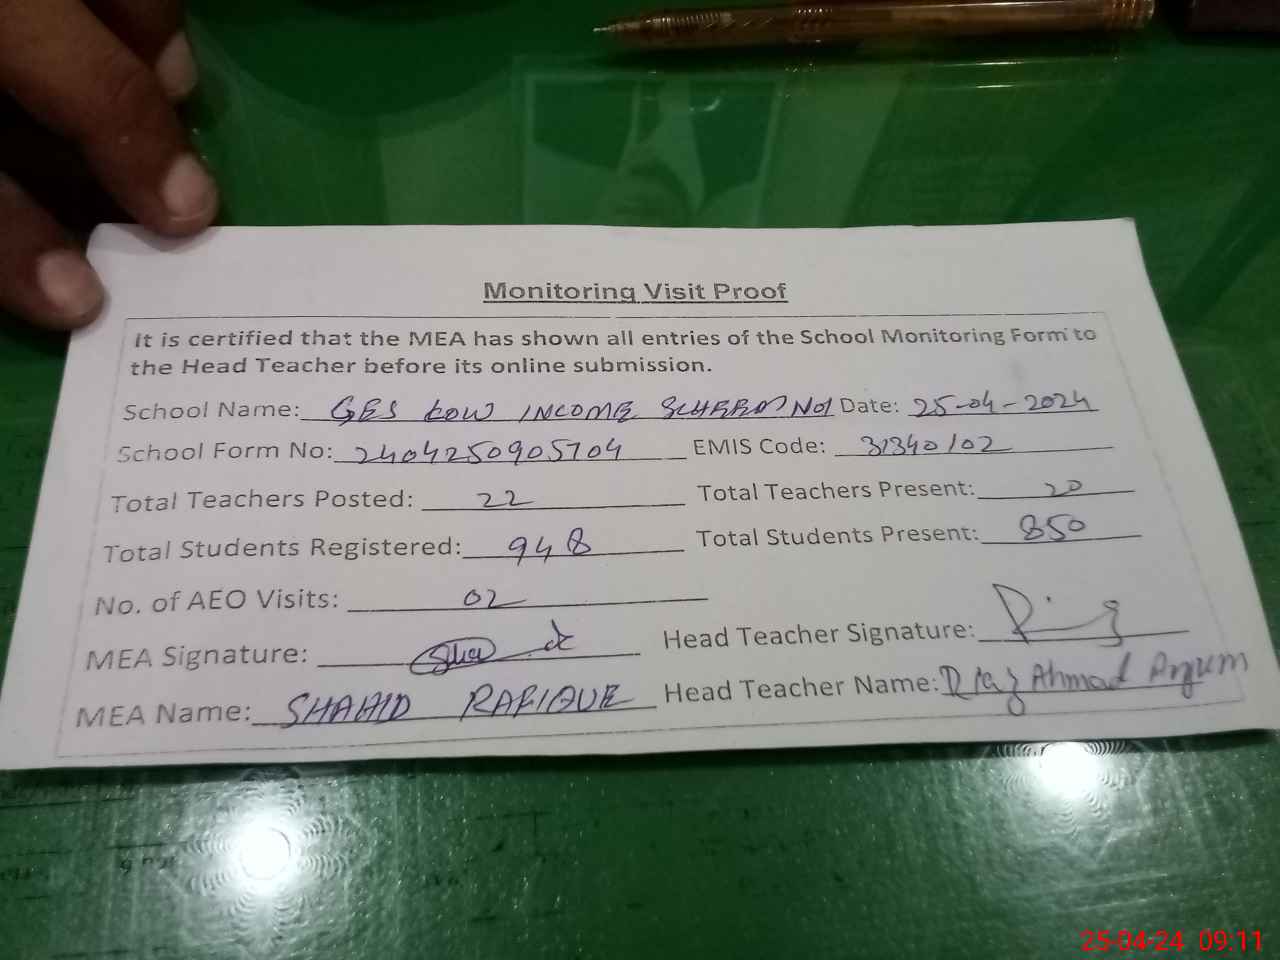 Monitoring Visit Proof
It is certified that the MEA has shown all entries of the School Monitoring Form to
the Head Teacher before its online submission.
School Name: GES LOW INCOME No1 Date: 25-04-2024
School Form No: 2404250905704 EMIS Code: 31340102
Total Teachers Posted: 22 Total Teachers Present: 20
Total Students Registered: 948 Total Students Present: 850
No. of AEO Visits: 02
MEA Signature: Head Teacher Signature:
MEA Name: SHAHID RAFIQUE Head Teacher Name: Riaz Ahmad Anjum
25-04-24 09:11